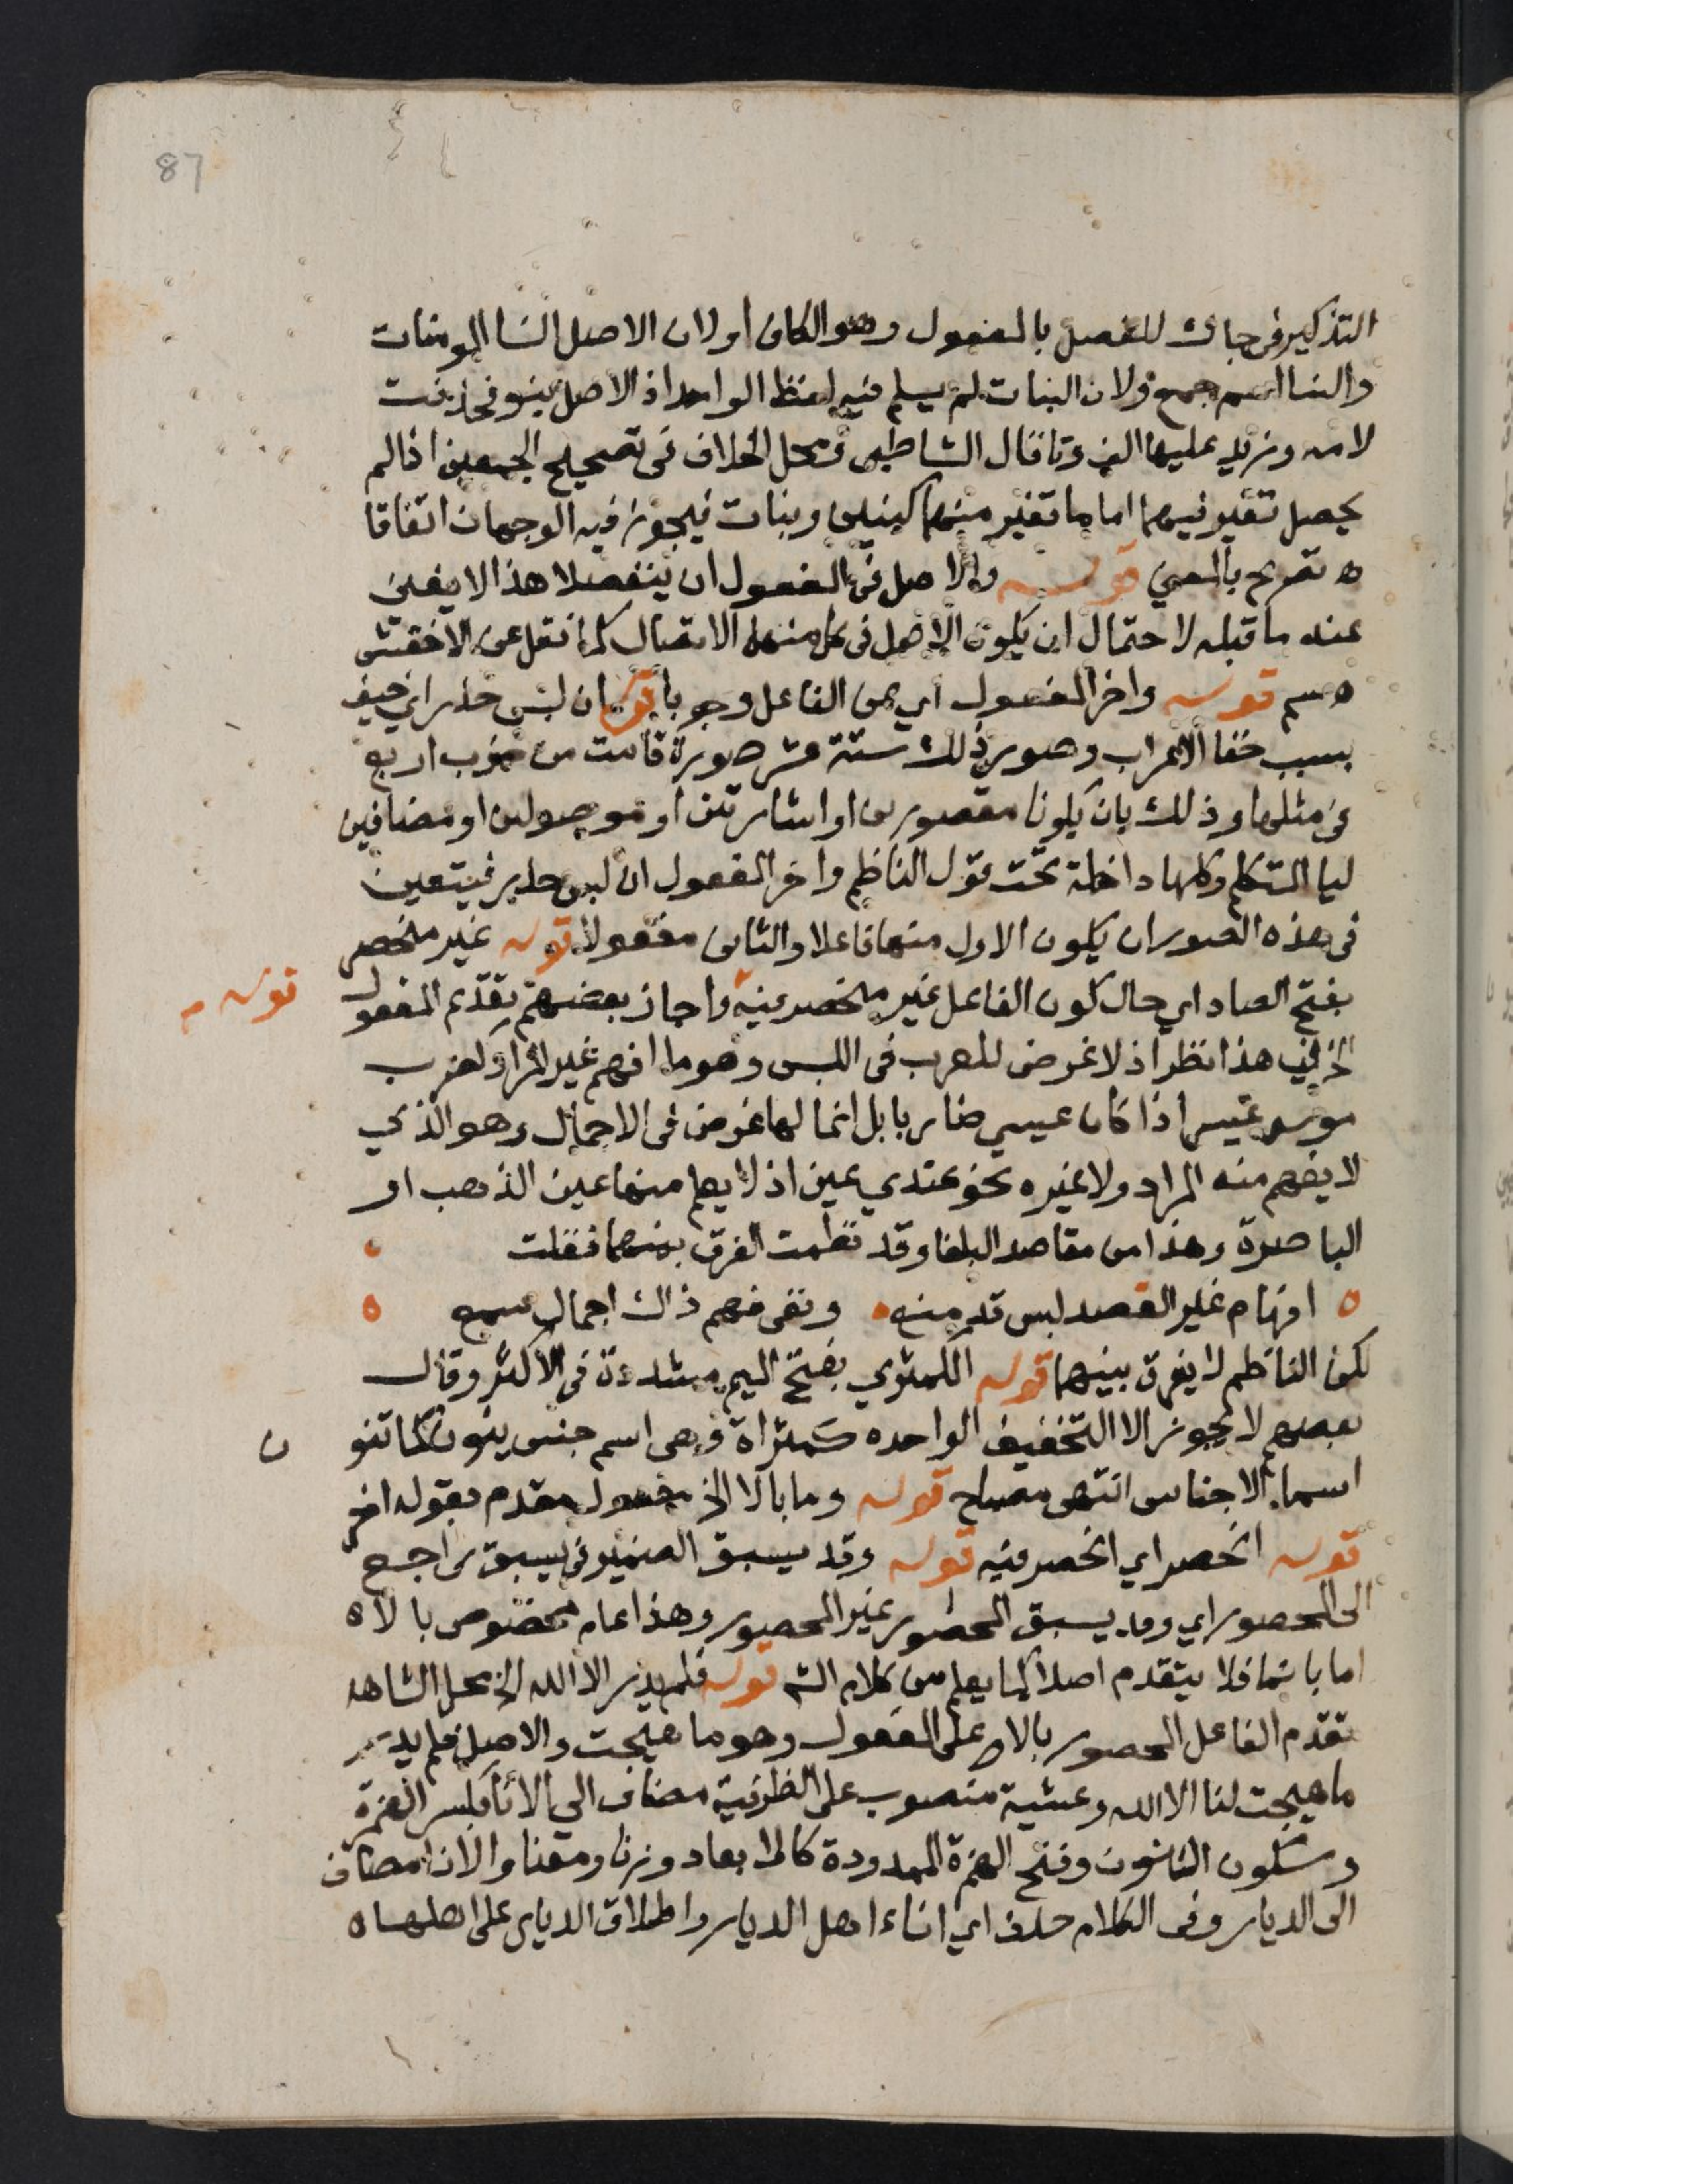 87
التذكير فى جاءك للفصل بالمفعول وهو الكاف اولان الاصل النسا المومنات
والنسا اسم جمع ولان البنات لم يسلم فيه لفظ الواحد اذ الاصل بنو فحذفت
لامه وزيد عليها الف وتا قال الشاطبى ومحل الخلاف فى تصحيح الجمعين اذا لم
يحصل تغير فيهما اما ما تغير منهما كبنين وبنات فيجوز فيه الوجهان اتفاقا
ه تصريح بالمعنى قوله والاصل فى المفعول ان ينفصلا هذا لا يغنى
عنه ما قبله لاحتمال ان يكون الاصل فى كل منهما الاتصال كما نقل عن الاخفش
ه سم قوله واخر المفعول اي عن الفاعل وجوبا قوله ان لبس حذر اي خيف
بسبب خفا الاعراب وصور ذلك ستة عشر صورة قامت من ضرب اربع
فى مثلها وذلك بان يكونا مقصورين او اشارتين او موصولين او مضافين
ليا المتكلم وكلها داخلة تحت قول الناظم واخر المفعول ان لبس حذر فيتعين
فى هذه الصور ان يكون الاول منهما فاعلا والثانى مفعولا قوله غير منحصر
بفتح الصاد اي حال كون الفاعل غير منحصر فيه واجاز بعضهم تقديم المفعول
قوله م
الخ فى هذا نظر اذ لا غرض للعرب فى اللبس وهو ما افهم غير المراد كضرب
موسى عيسى اذا كان عيسى ضاربا بل انما لها غرض فى الاجمال وهو الذي
لا يفهم منه المراد ولا غيره نحو عندي عين اذ لا يعلم منها عين الذهب او
الباصرة وهذا من مقاصد البلغا وقد نظمت الفرق بينهما فقلت
ه افهام غير القصد لبس قد منع ه ونفى فهم ذاك اجمال سمع ه
لكن الناظم لا يفرق بينهما قوله الكمثري بفتح الميم مشددة فى الاكثر وقال
بعضهم لا يجوز الا التخفيف الواحده كمثراة وهى اسم جنس ينون كما تنو
ن
اسماء الاجناس انتهى مصباح قوله وما بالا الخ مفعول مقدم بقوله اخر
قوله انحصر اي انحصر فيه قوله وقد يسبق الضمير فى يسبق راجع
الى المحصور اي وقد يسبق المحصور غير المحصور وهذا عام مخصوص بالا ه
اما بانما فلا يتقدم اصلا كما يعلم من كلام الش قوله فلم يدر الا الله الخ محل الشاهد
تقدم الفاعل المحصور بالا على المفعول وهو ما هيجت والاصل فلم يدر
ما هيجت لنا الا الله وعشية منصوب على الظرفية مضاف الي الاناء بكسر الهمزة
وسكون النون وفتح الهمزة الممدودة كالابعاد وزنا ومعنا والاناء مضاف
الى الديار وفى الكلام حذف اي اناء اهل الديار واطلاق الديار على اهلها ه